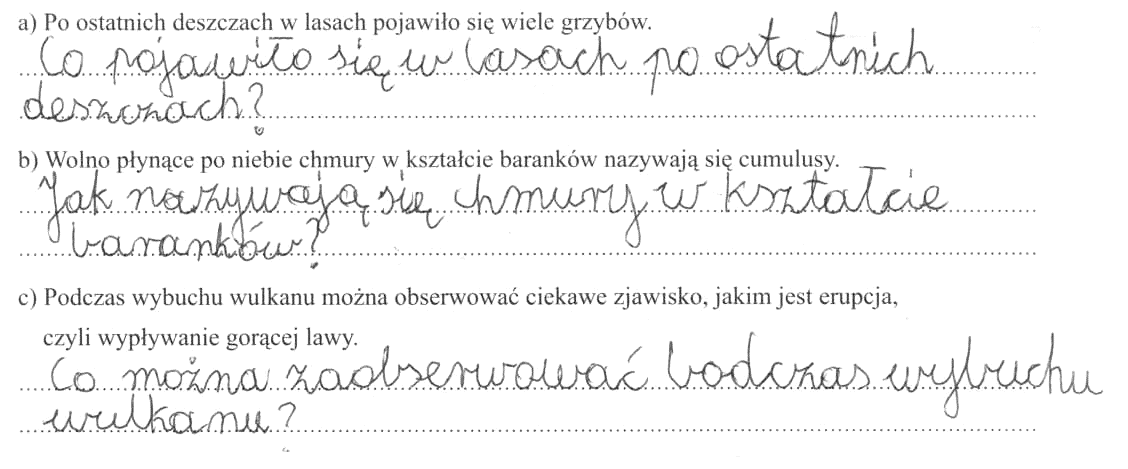 a) Po ostatnich deszczach w lasach pojawiło się wiele grzybów.
Co pojawiło się w lasach po ostatnich
deszczach?
b) Wolno płynące po niebie chmury w kształcie baranków nazywają się cumulusy.
Jak nazywają się chmury w kształcie
baranków?
c) Podczas wybuchu wulkanu można obserwować ciekawe zjawisko, jakim jest erupcja,
czyli wypływanie gorącej lawy.
Co można zaobserwować bodczas wybuchu
wulkanu?